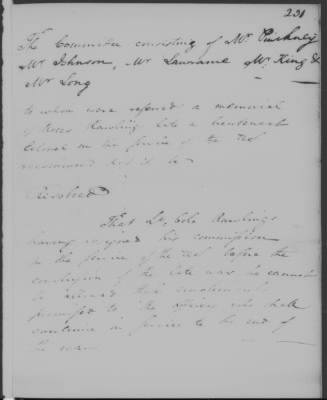 231
The Committee consisting of Mr Pinckney
Mr Johnson, Mr Lawrance Mr King &
Mr Long
to whom were referred a memorial
of Moses Rawlings late a lieutenant
Colonel in the service of the US
recommend that it be
Resolved
That Lt. Colo Rawlings
having resigned his commission
in the service of the US before the
conclusion of the late war he cannot
be allowed the emoluments
promised to the officers who shall
continue in service to the end of
the war